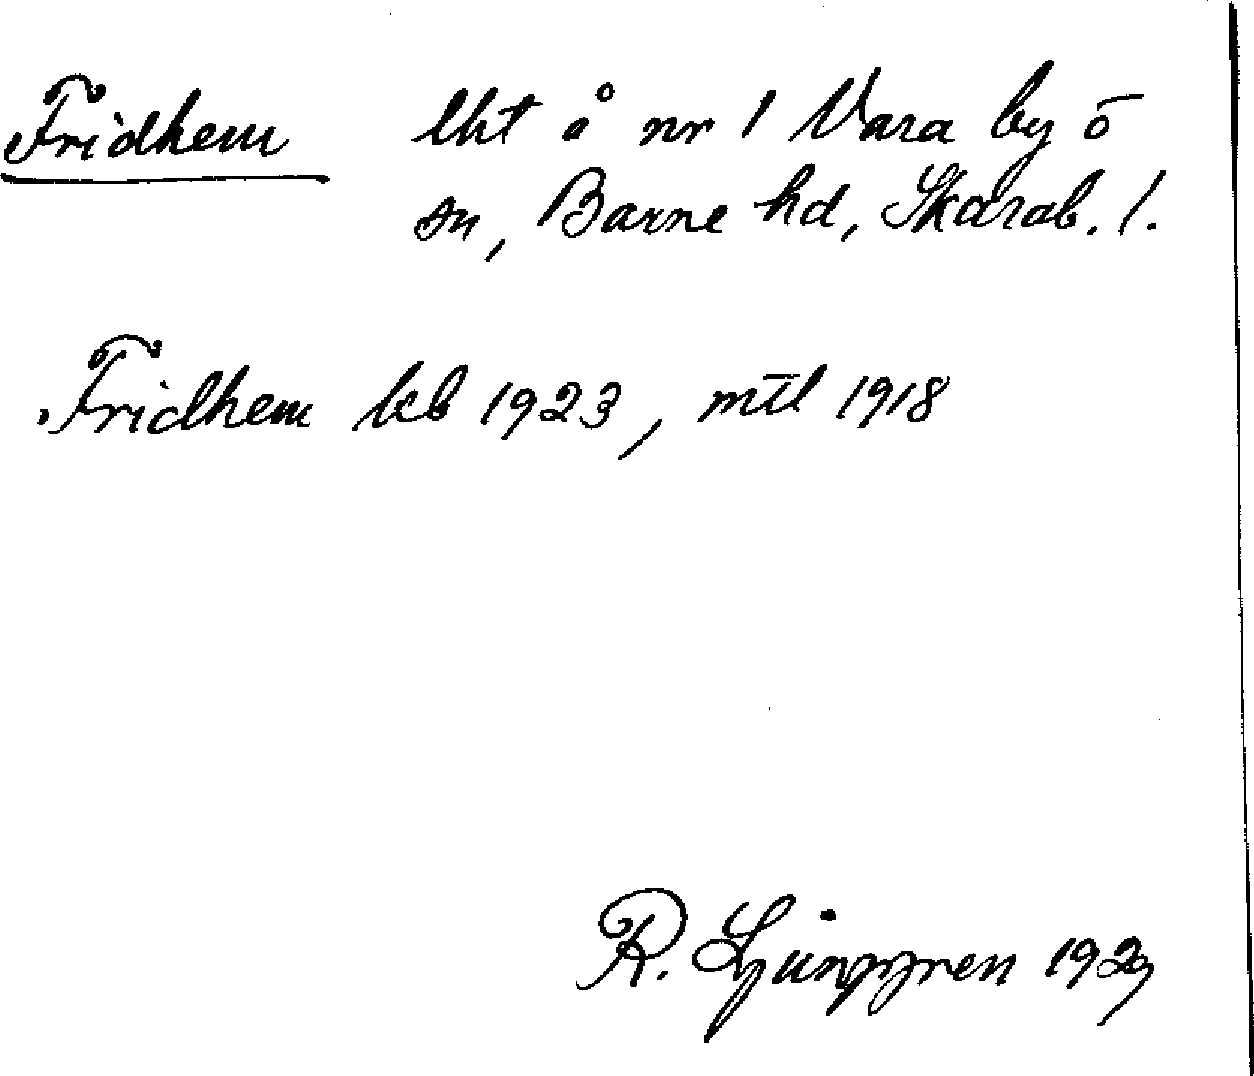 Fridhem lht å nr 1 Vara by ō
sn, Barne hd, Skarab. l.
Fridhem kb 1923, mtl 1918
R. Ljunggren 1929